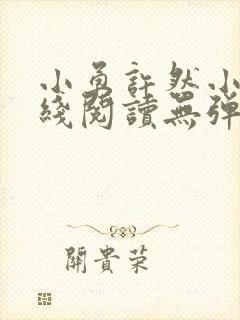 小魚許然小
綫閱讀無彈
關貴荣